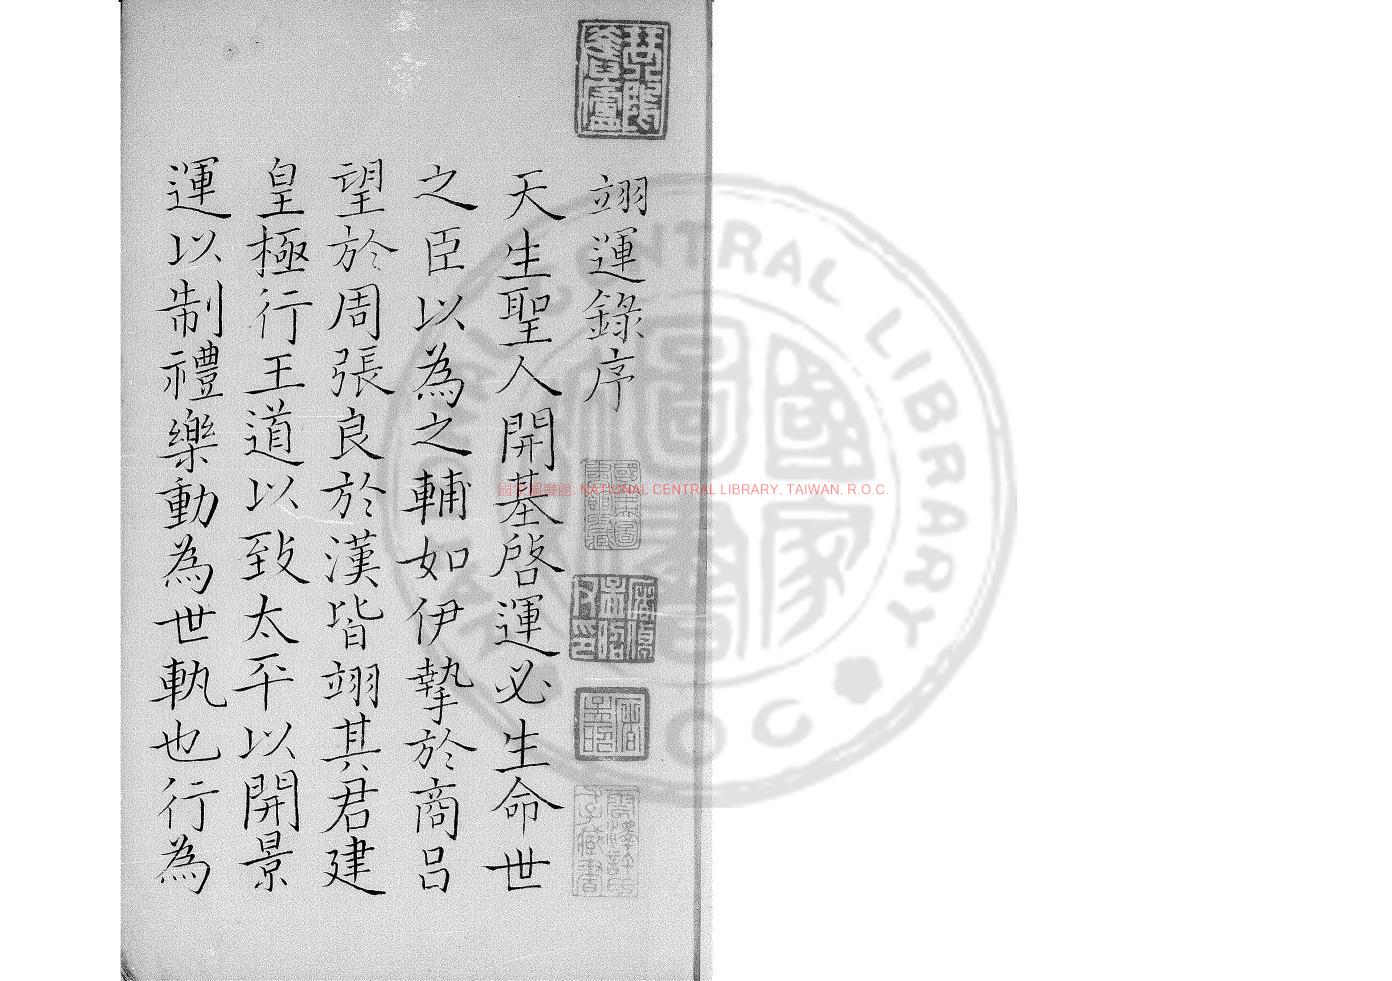 翊運錄序
天生聖人開基啓運必生命世
之臣以為之輔如伊摯於商呂
望於周張良於漢皆翊其君建
皇極行王道以致太平以開景
運以制禮樂動為世軌也行為
國家圖書館藏
國家圖書館, NATIONAL CENTRAL LIBRARY, TAIWAN, R.O.C.
NATIONAL CENTRAL LIBRARY
R.O.C.
國家圖書